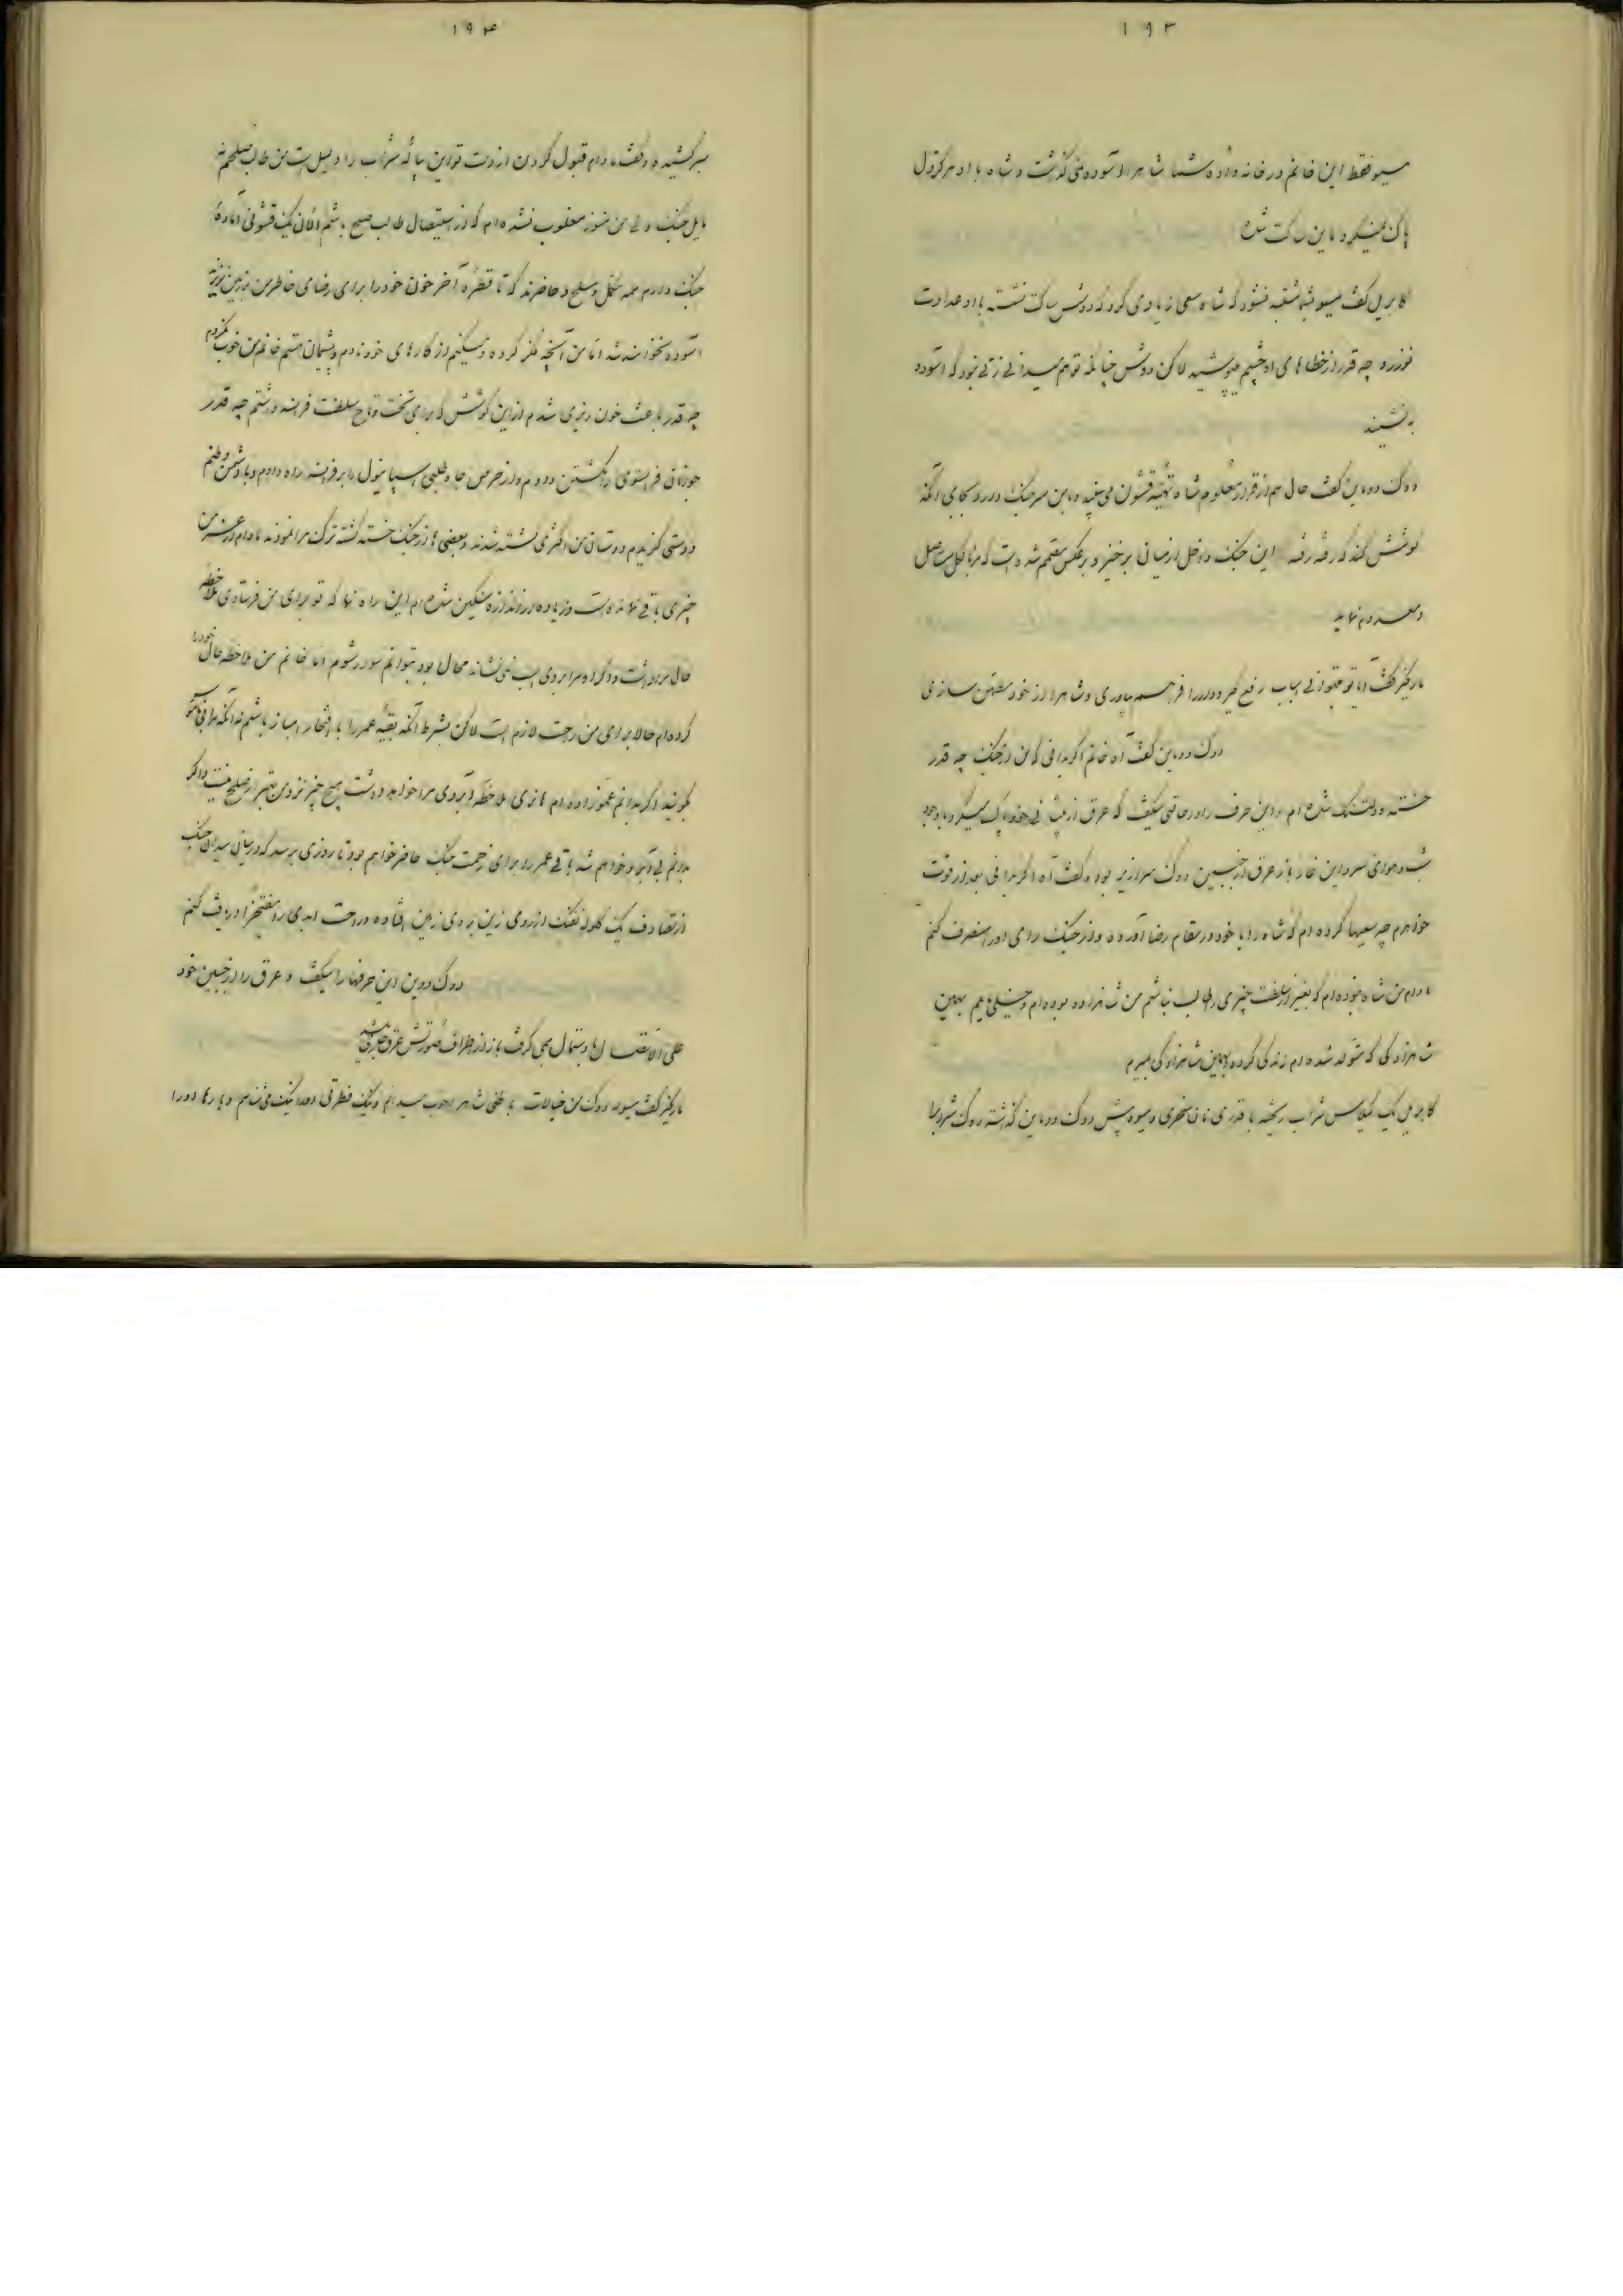 ۱۹۳
مسیو فقط این خانم در خانه واده شما شاهرا آسوده نمی گذاشت و شاه با او هرگز دل
پاک نمیکرد مابین ساکت شد
کابریل گفت مسیو بشما مشتبه نشود که شاه سعی زیادی کرد که دوشس ساکت نشسته با او عداوت
نورزد و چه قدر از خطاهای او چشم میپوشید لاکن دوشس چنانکه تو هم میدانی زنی نبود که آسوده
بنشیند
دوک دو ماین گفت حال هم از قرار معلوم شاه تهیه قشون می بیند و باین سر جنگ دارد بجای آنکه
کوشش کند که رفته رفته این جنگ داخل از میانی برخیزد برعکس مصمم شده است که مرا بالکل مستاصل
و معدوم نماید
مارکیز گفت آیا تو میتوانی اسباب رفع گیر و دار را فراهم بیاوری و شاهرا از خود مطمئن سازی
دوک دو ماین گفت آه خانم اگر بدانی که من از جنگ چه قدر
خسته و دلتنگ شده ام و این حرف را در حالتی میگفت که عرق از پیشانی خود پاک میکرد با وجود
شب و هوای سرد این غار باز عرق از جبین دوک سرازیر بود و گفت آه اگر بدانی بعد از فوت
خواهرم چه سعیها کرده ام که شاه را با خود در مقام رضا آورده و از جنگ رای او را منصرف کنم
مادام من شاه نبوده ام که بغیر از سلطنت چیزی را طالب نباشم من شاهزاده بوده ام و خیلی مایلم بهمین
شاهزادگی که متولد شده ام زندگی کرده بهمین شاهزادگی بمیرم
کابریل یک گیلاس شراب ریخته با قدری نان سخاری و میوه پیش دوک دو ماین گذاشته دوک شراب را
۱۹۴
سر کشیده و گفت مادام قبول کردن از دست تو این پیاله شراب را دلیل است من طالب صلحم نه
مایل جنگ ولی من هنوز مغلوب نشده ام که از استیصال طالب صلح باشم الان یک قشونی آماده
جنگ دارم همه مکمل و مسلح و حاضرند که تا قطره آخر خون خود را برای رضای خاطر من بزمین نریزند
آسوده نخواهند شد اما من آنچه فکر کرده و میکنم از کارهای خود نادم و پشیمان هستم خانم من خوب
چه قدر باعث خون ریزی شدم از این کوشش که برای تخت و تاج سلطنت فرانسه داشتم چه قدر
جوانان فرانسوی را بکشتن دادم و از حرص جاه طلبی اسپانیول را بر فرانسه راه دادم و با دشمن وطنم
دوستی گزیدم دوستان من اکثری کشته شدند و بعضی ها از جنگ خسته گشته ترک مرا نمودند مادام از عمر من
چیزی باقی نمانده است و زیاده از اندازه سنگین شده ام این راه نما که تو برای من فرستادی ملاحظه
حال مرا داشت والا مرا بروی اسب نمی نشاند محال بود بتوانم سوار شوم اما خانم من ملاحظه حال خود را
کرده ام حالا برای من راحت لازم است لاکن بشرط آنکه بقیه عمر را با افتخار انباز باشم نه آنکه
گویند اگر بدانم عموزاده ام هانری ملاحظه آبروی مرا خواهد داشت هیچ چیز نزد من بهتر از صلح نیست و اگر
بدانم بی آبرو خواهم شد باقی عمر را برای زحمت جنگ حاضر خواهم بود تا روزی برسد که در میان میدان جنگ
از تصادف یک گلوله تفنگ از روی زین بروی زمین افتاده و راحت ابدی را مفتخراً دریافت کنم
دوک دوین این حرفها را میگفت و عرق را از جبین خود
علی الاتصال با دستمال می گرفت باز از اطراف صورتش عرق جاری میشد
مارکیز گفت مسیو دوک من خیالات باطنی شاهرا خوب میدانم و نیک فطرتی او را نیک می شناسم و بارها او را